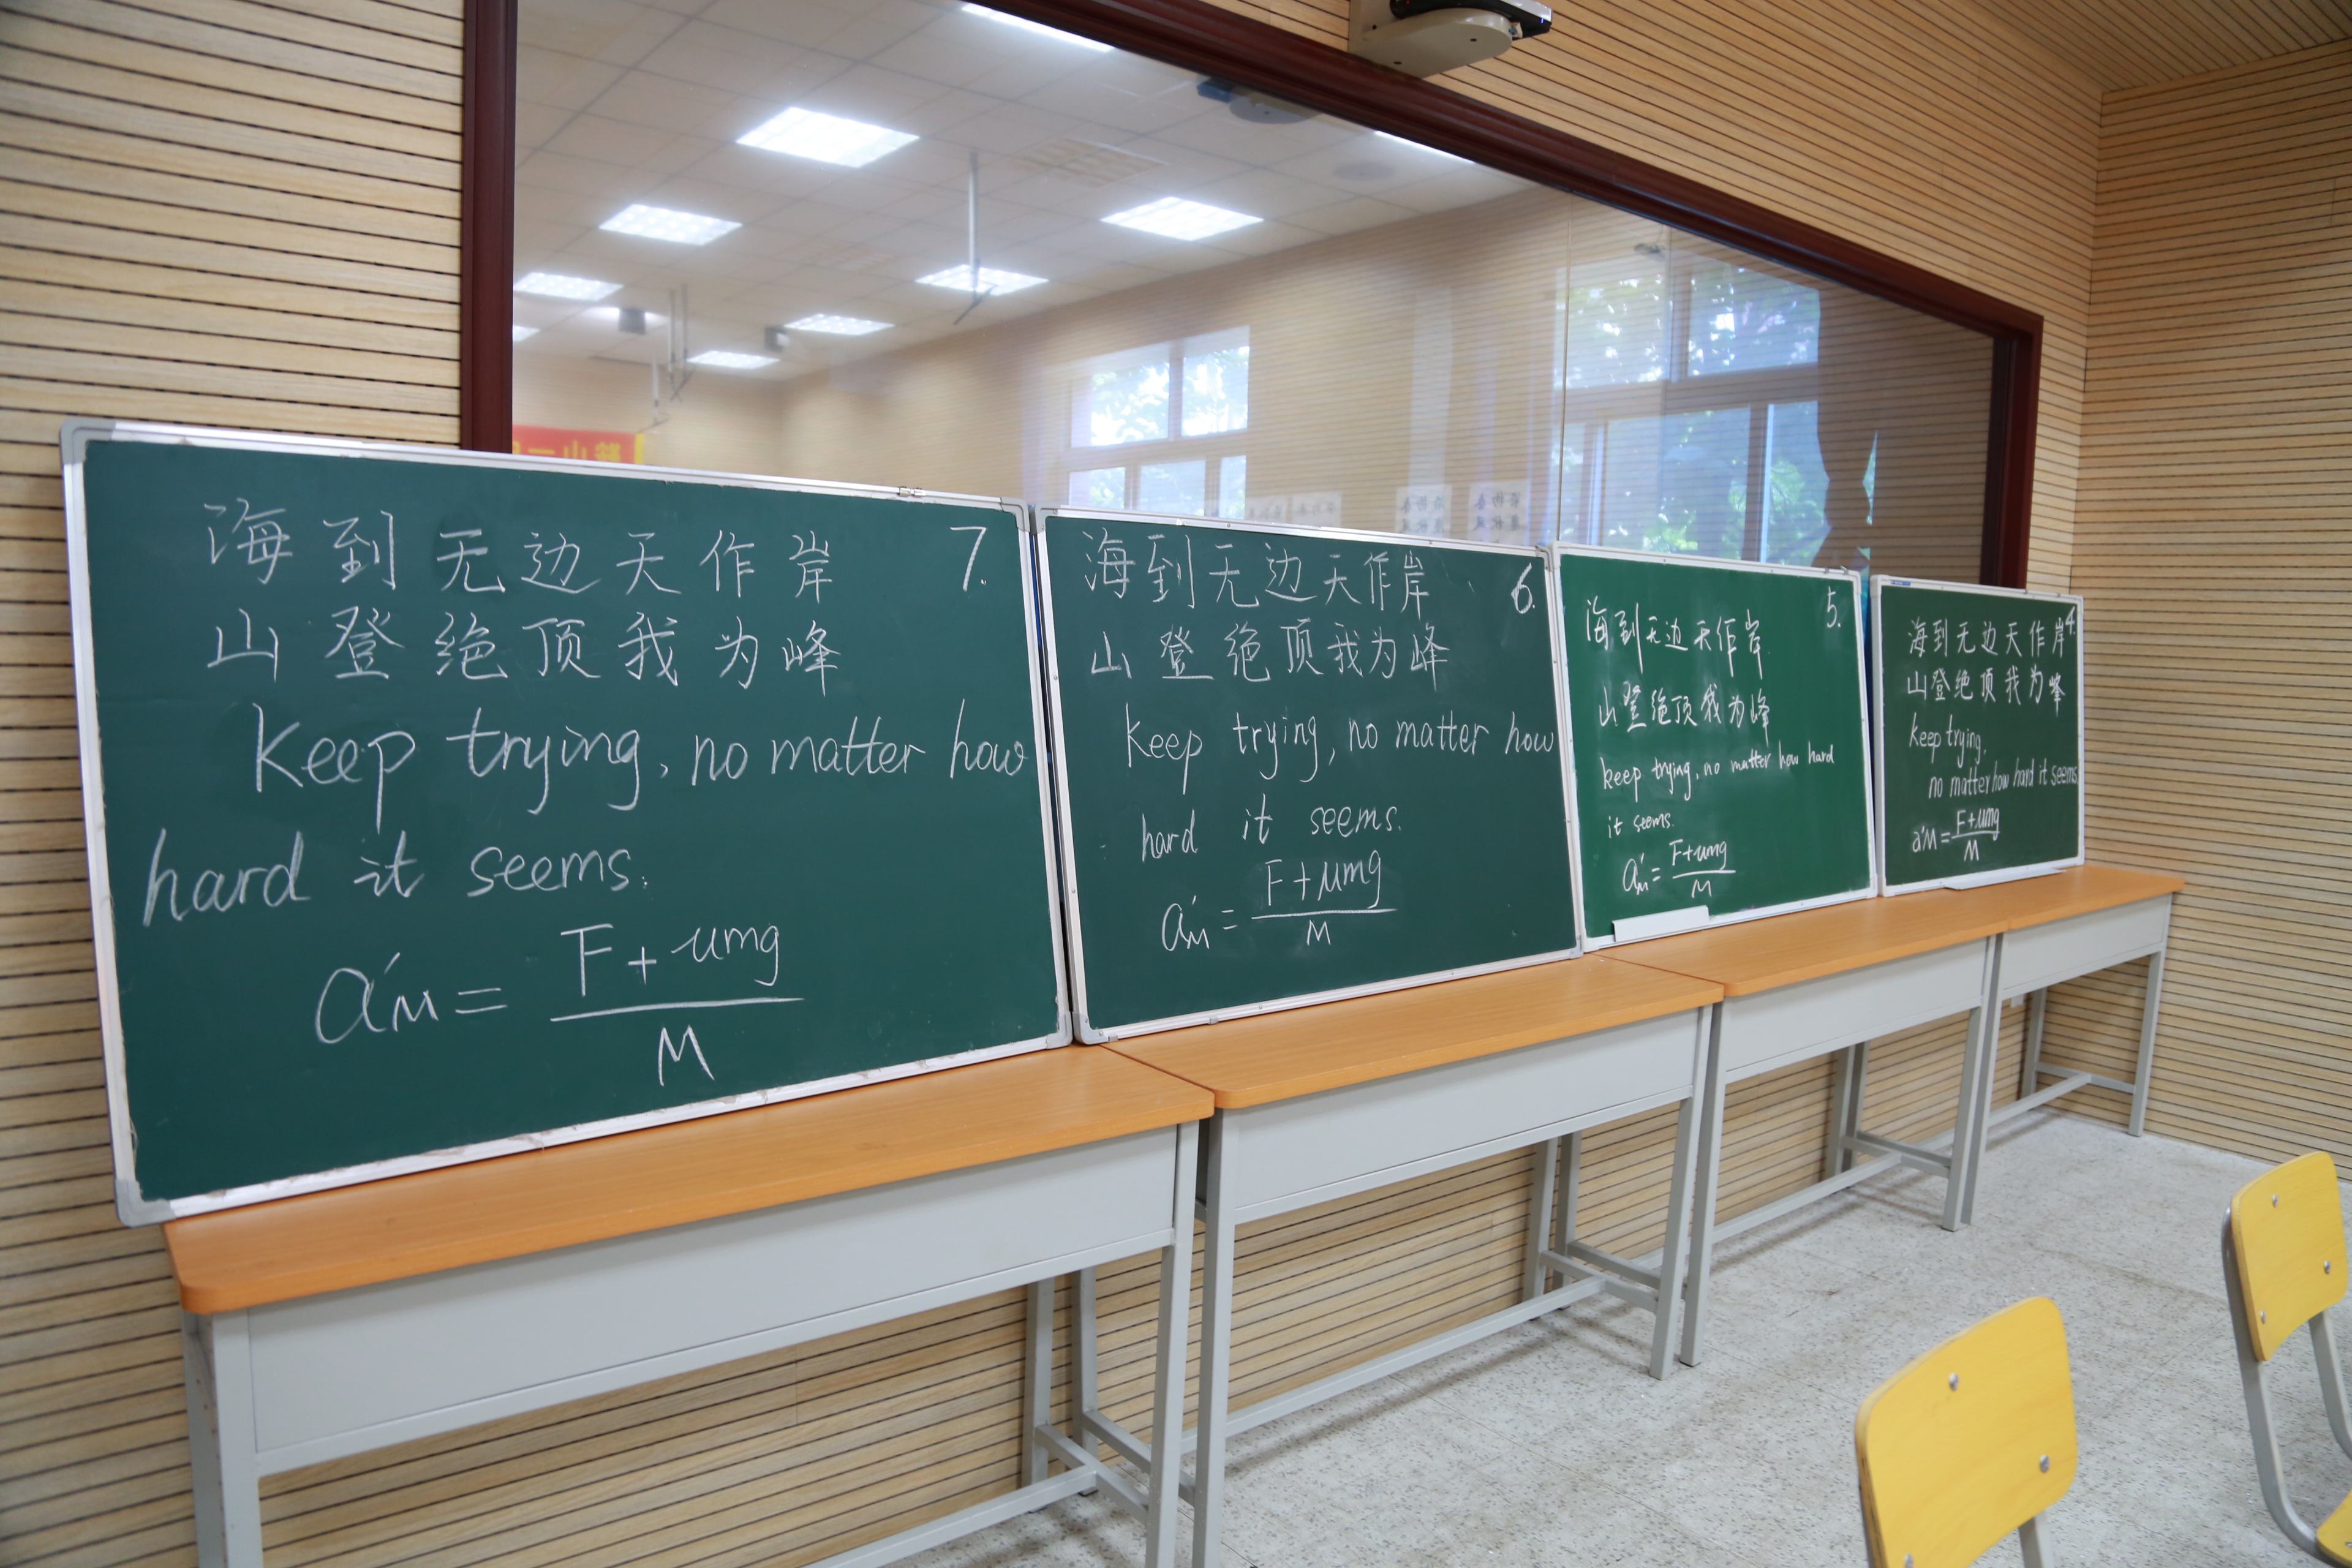 海到无边天作岸 7.
山登绝顶我为峰
Keep trying, no matter how
hard it seems.
a'M = F+μmg / M
海到无边天作岸 6.
山登绝顶我为峰
keep trying, no matter how
hard it seems.
a'M = F+μmg / M
海到无边天作岸 5.
山登绝顶我为峰
keep trying, no matter how hard
it seems.
a'M = F+μmg / M
海到无边天作岸 4.
山登绝顶我为峰
keep trying,
no matter how hard it seems
a'M = F+μmg / M